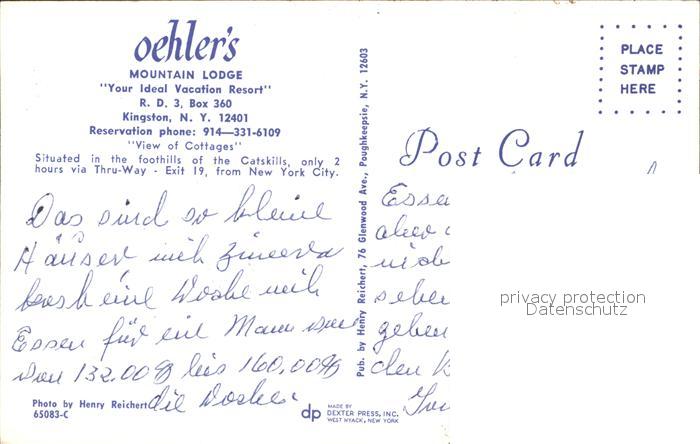 oehler's
MOUNTAIN LODGE
"Your Ideal Vacation Resort"
R. D. 3, Box 360
Kingston, N. Y. 12401
Reservation phone: 914—331-6109
"View of Cottages"
Situated in the foothills of the Catskills, only 2
hours via Thru-Way - Exit 19, from New York City.
Das sind so kleine
Häuser mit
eine Woche mit
Essen für ein Mann
von 132.00$ bis 160.00$
die Woche.
Photo by Henry Reichert
65083-C
Pub. by Henry Reichert, 76 Glenwood Ave., Poughkeepsie, N.Y. 12603
dp
MADE BY
DEXTER PRESS, INC.
WEST NYACK, NEW YORK
PLACE
STAMP
HERE
Post Card
Essen
aber
geben
den
privacy protection
Datenschutz